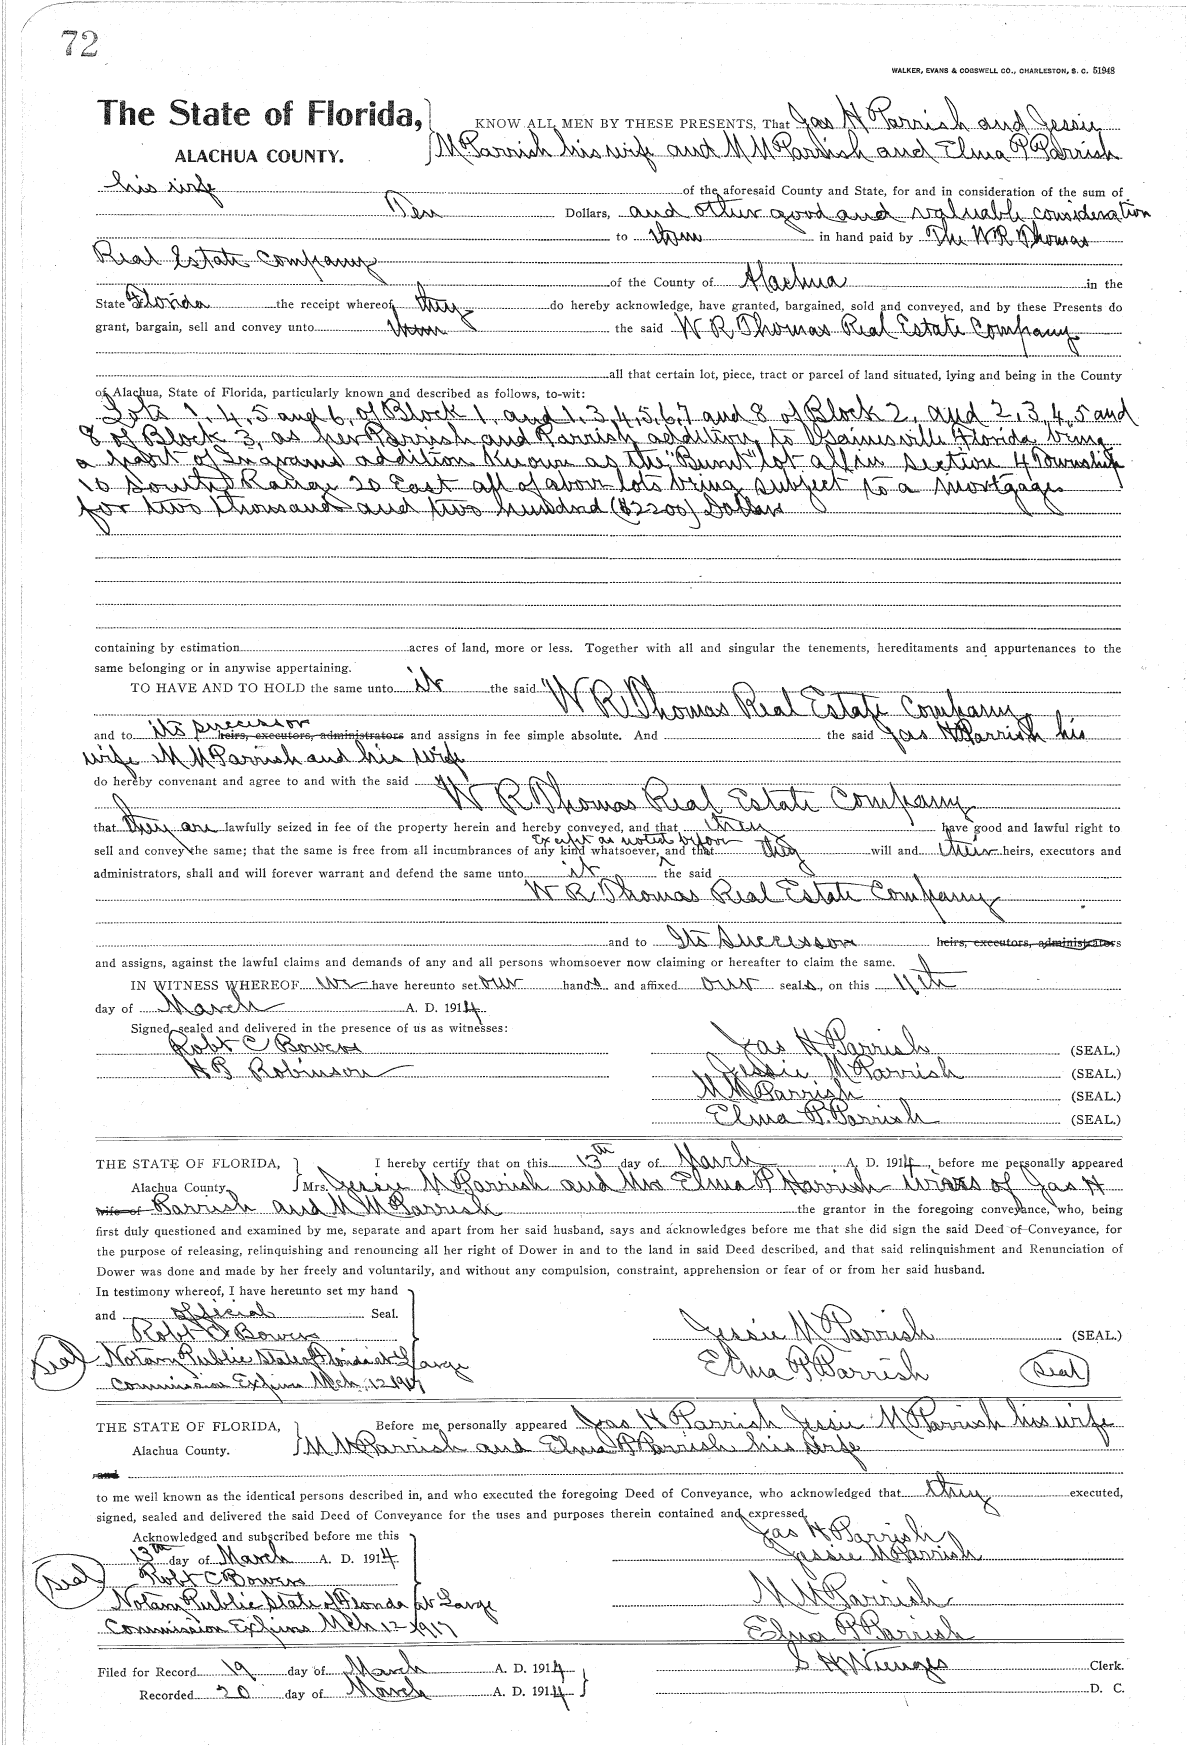 72
WALKER, EVANS & COGSWELL CO., CHARLESTON, S. C. 51948
The State of Florida, KNOW ALL MEN BY THESE PRESENTS, That Jas H Parrish and Jessie
ALACHUA COUNTY. M Parrish his wife and M M Parrish and Elma P Parrish
his wife of the aforesaid County and State, for and in consideration of the sum of
Ten Dollars, and other good and valuable consideration
to them in hand paid by The W R Thomas
Real Estate Company
of the County of Alachua in the
State Florida the receipt whereof they do hereby acknowledge, have granted, bargained, sold and conveyed, and by these Presents do
grant, bargain, sell and convey unto the said W R Thomas Real Estate Company
all that certain lot, piece, tract or parcel of land situated, lying and being in the County
of Alachua, State of Florida, particularly known and described as follows, to-wit:
Lots 1, 4, 5 and 6, of Block 1, and 1, 3, 4, 5, 6, 7 and 8 of Block 2, and 2, 3, 4, 5 and
8 of Block 3, as per Parrish and Parrish addition, to Gainesville Florida being
a part of Ingrams addition Known as the "Burnt" lot all in Section 4 Township
10 South Range 20 East all of above lots being subject to a mortgage
for two thousand and two hundred ($2200) Dollars
containing by estimation acres of land, more or less. Together with all and singular the tenements, hereditaments and appurtenances to the
same belonging or in anywise appertaining.
TO HAVE AND TO HOLD the same unto it the said W R Thomas Real Estate Company
and to its successor heirs, executors, administrators and assigns in fee simple absolute. And the said Jas H Parrish his
wife M M Parrish and his wife
do hereby convenant and agree to and with the said
W R Thomas Real Estate Company
that they are lawfully seized in fee of the property herein and hereby conveyed, and that they have good and lawful right to
Except as noted before
sell and convey the same; that the same is free from all incumbrances of any kind whatsoever, and that they will and their heirs, executors and
administrators, shall and will forever warrant and defend the same unto it the said
W R Thomas Real Estate Company
and to Its Successor heirs, executors, administrators
and assigns, against the lawful claims and demands of any and all persons whomsoever now claiming or hereafter to claim the same.
IN WITNESS WHEREOF we have hereunto set our hands and affixed our seals, on this 11th
day of March A. D. 1914
Signed, sealed and delivered in the presence of us as witnesses:
Robt C Bowers Jas H Parrish (SEAL.)
H P Robinson Jessie M Parrish (SEAL.)
M M Parrish (SEAL.)
Elma P. Parrish (SEAL.)
THE STATE OF FLORIDA, I hereby certify that on this 13th day of March A. D. 1914, before me personally appeared
Alachua County. Mrs. Jessie M Parrish and Mrs Elma P Parrish wives of Jas H
wife of Parrish and M M Parrish the grantor in the foregoing conveyance, who, being
first duly questioned and examined by me, separate and apart from her said husband, says and acknowledges before me that she did sign the said Deed of Conveyance, for
the purpose of releasing, relinquishing and renouncing all her right of Dower in and to the land in said Deed described, and that said relinquishment and Renunciation of
Dower was done and made by her freely and voluntarily, and without any compulsion, constraint, apprehension or fear of or from her said husband.
In testimony whereof, I have hereunto set my hand
and official Seal.
Robt C Bowers Jessie M Parrish (SEAL.)
Seal Notary Public State of Florida at Large Elma P. Parrish Seal
Commission Expires Mch, 12 1917
THE STATE OF FLORIDA, Before me personally appeared Jas H Parrish Jessie M Parrish his wife
Alachua County. M M Parrish and Elma P Parrish his wife
and
to me well known as the identical persons described in, and who executed the foregoing Deed of Conveyance, who acknowledged that they executed,
signed, sealed and delivered the said Deed of Conveyance for the uses and purposes therein contained and expressed.
Acknowledged and subscribed before me this Jas H Parrish
13th day of March A. D. 1914 Jessie M Parrish
Seal Robt C Bowers
Notary Public State of Florida at Large M M Parrish
Commission Expires Mch 12 1917 Elma P Parrish
Filed for Record 19 day of March A. D. 1914 S H Wienges Clerk.
Recorded 20 day of March A. D. 1914 D. C.